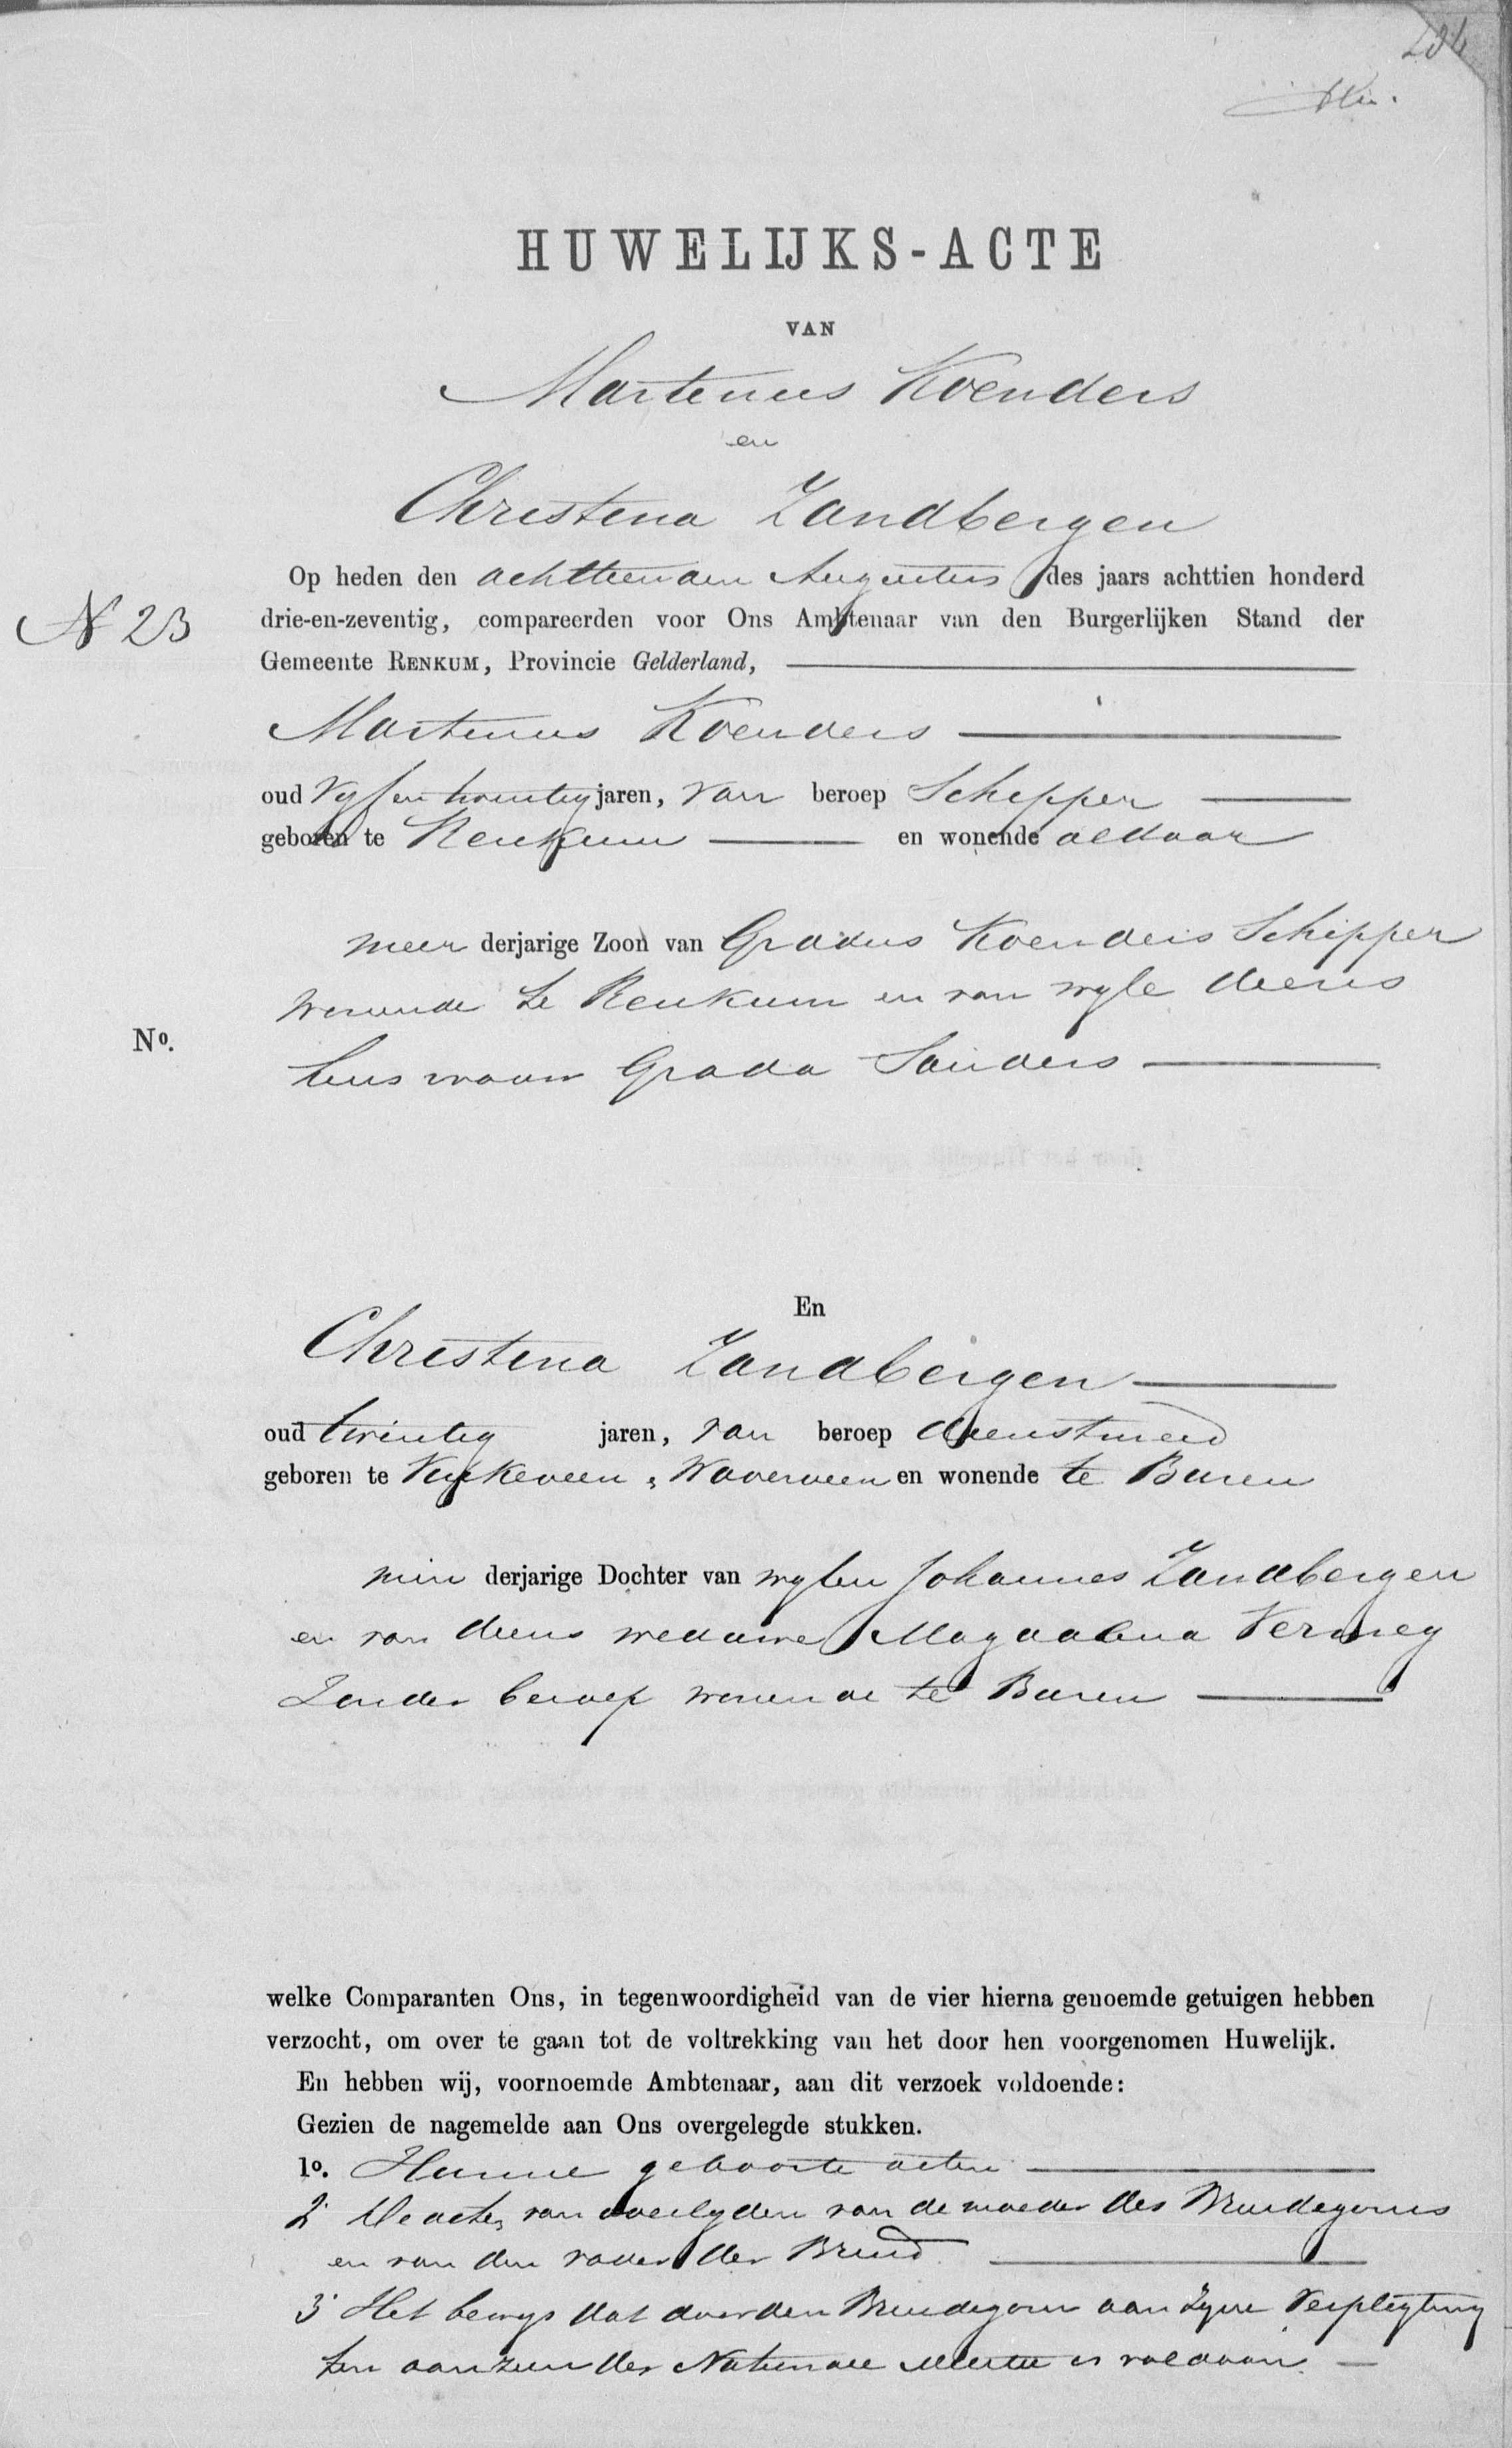 HUWELIJKS-ACTE
VAN
Martinus Koenders
en
Christina Zandbergen
Op heden den achttienden Augustus des jaars achttien honderd
N 23
drie-en-zeventig, compareerden voor Ons Ambtenaar van den Burgerlijken Stand der
Gemeente RENKUM, Provincie Gelderland,
Martinus Koenders
oud Vyf en twintig jaren, van beroep Schipper
geboren te Renkum en wonende aldaar
meer derjarige Zoon van Gradus Koenders Schipper
wonende te Renkum en van wyle diens
No.
huisvrouw Grada Sanders
En
Christina Zandbergen
oud twintig jaren, van beroep dienstmeid
geboren te Vinkeveen & Waverveen en wonende te Buren
min derjarige Dochter van wylen Johannes Zandbergen
en van diens weduwe Magdalena Vermey
Zonder beroep wonende te Buren
welke Comparanten Ons, in tegenwoordigheid van de vier hierna genoemde getuigen hebben
verzocht, om over te gaan tot de voltrekking van het door hen voorgenomen Huwelijk.
En hebben wij, voornoemde Ambtenaar, aan dit verzoek voldoende:
Gezien de nagemelde aan Ons overgelegde stukken.
1o. Hunne geboorte acten
2o De acten van overlyden van de moeder des Bruidegoms
en van den vader der Bruid
3o Het bewys dat door den Bruidegom aan Zyne Verpligting
ten aanzien der Nationale Militie is voldaan.